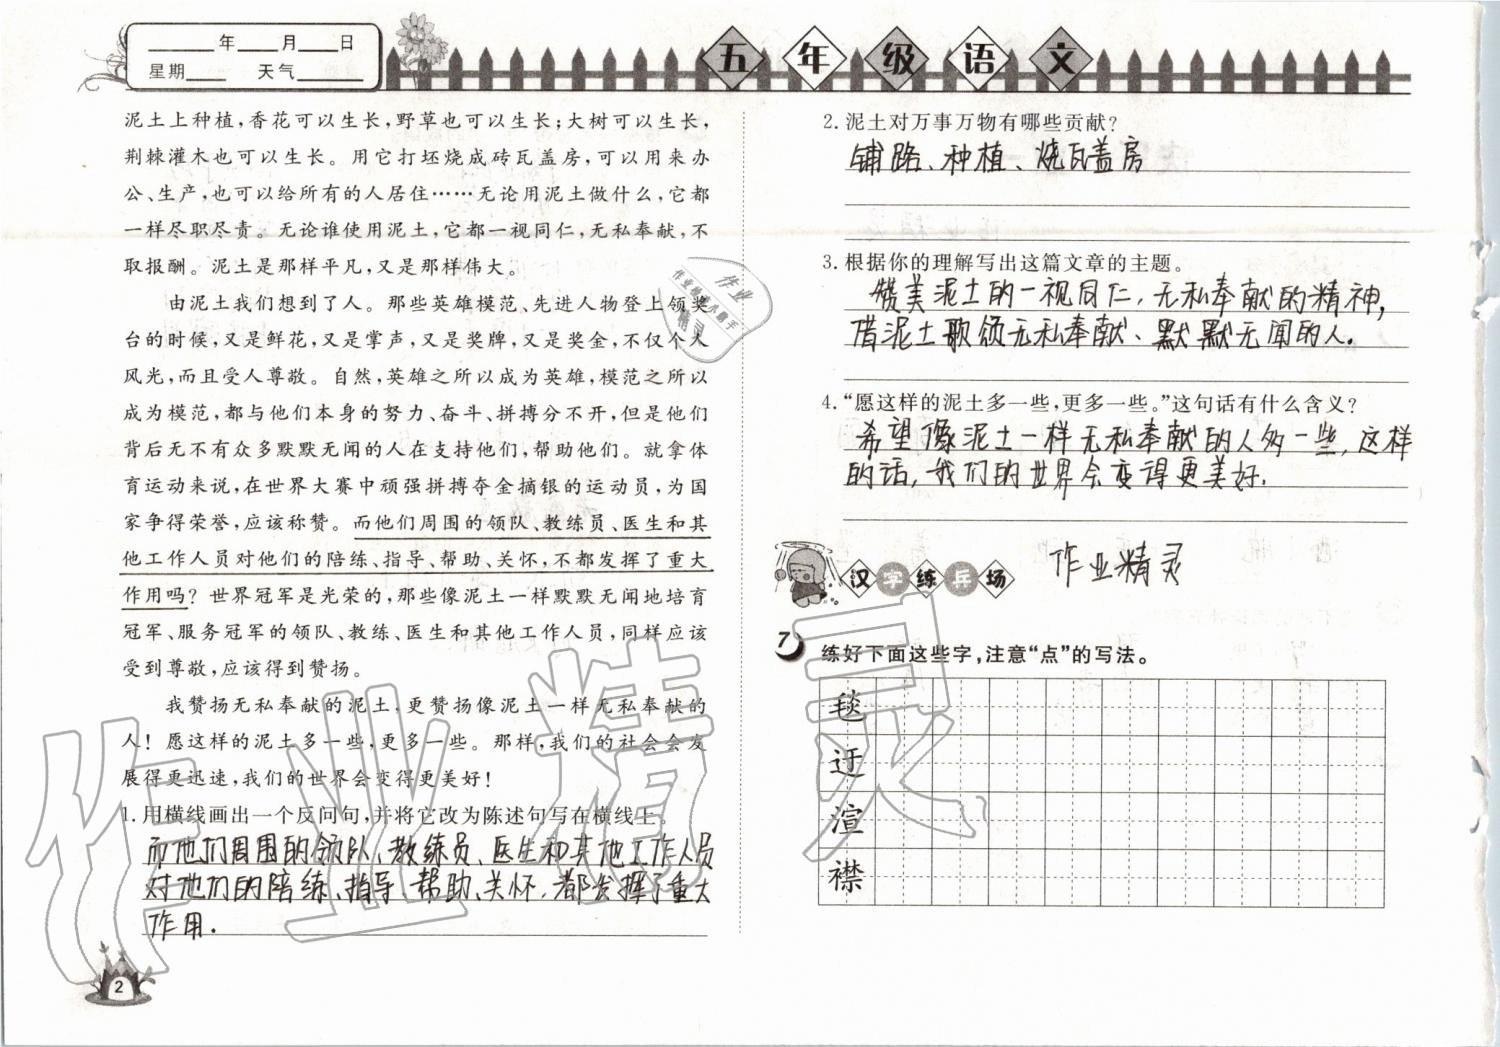 ______年____月____日
星期____ 天气______
五年级语文
泥土上种植,香花可以生长,野草也可以生长;大树可以生长,
荆棘灌木也可以生长。用它打坯烧成砖瓦盖房,可以用来办
公、生产,也可以给所有的人居住……无论用泥土做什么,它都
一样尽职尽责。无论谁使用泥土,它都一视同仁,无私奉献,不
取报酬。泥土是那样平凡,又是那样伟大。
由泥土我们想到了人。那些英雄模范、先进人物登上领奖
台的时候,又是鲜花,又是掌声,又是奖牌,又是奖金,不仅个人
风光,而且受人尊敬。自然,英雄之所以成为英雄,模范之所以
成为模范,都与他们本身的努力、奋斗、拼搏分不开,但是他们
背后无不有众多默默无闻的人在支持他们,帮助他们。就拿体
育运动来说,在世界大赛中顽强拼搏夺金摘银的运动员,为国
家争得荣誉,应该称赞。而他们周围的领队、教练员、医生和其
他工作人员对他们的陪练、指导、帮助、关怀,不都发挥了重大
作用吗?世界冠军是光荣的,那些像泥土一样默默无闻地培育
冠军、服务冠军的领队、教练、医生和其他工作人员,同样应该
受到尊敬,应该得到赞扬。
我赞扬无私奉献的泥土,更赞扬像泥土一样无私奉献的
人!愿这样的泥土多一些,更多一些。那样,我们的社会会发
展得更迅速,我们的世界会变得更美好!
1.用横线画出一个反问句,并将它改为陈述句写在横线上。
而他们周围的领队、教练员、医生和其他工作人员
对他们的陪练、指导、帮助、关怀,都发挥了重大
作用.
2
2.泥土对万事万物有哪些贡献?
铺路、种植、烧瓦盖房
3.根据你的理解写出这篇文章的主题。
赞美泥土的一视同仁,无私奉献的精神,
借泥土歌颂无私奉献、默默无闻的人.
4.“愿这样的泥土多一些,更多一些。”这句话有什么含义?
希望像泥土一样无私奉献的人多一些,这样
的话,我们的世界会变得更美好.
汉字练兵场
作业精灵
7 练好下面这些字,注意“点”的写法。
毯
迂
渲
襟
作业精灵